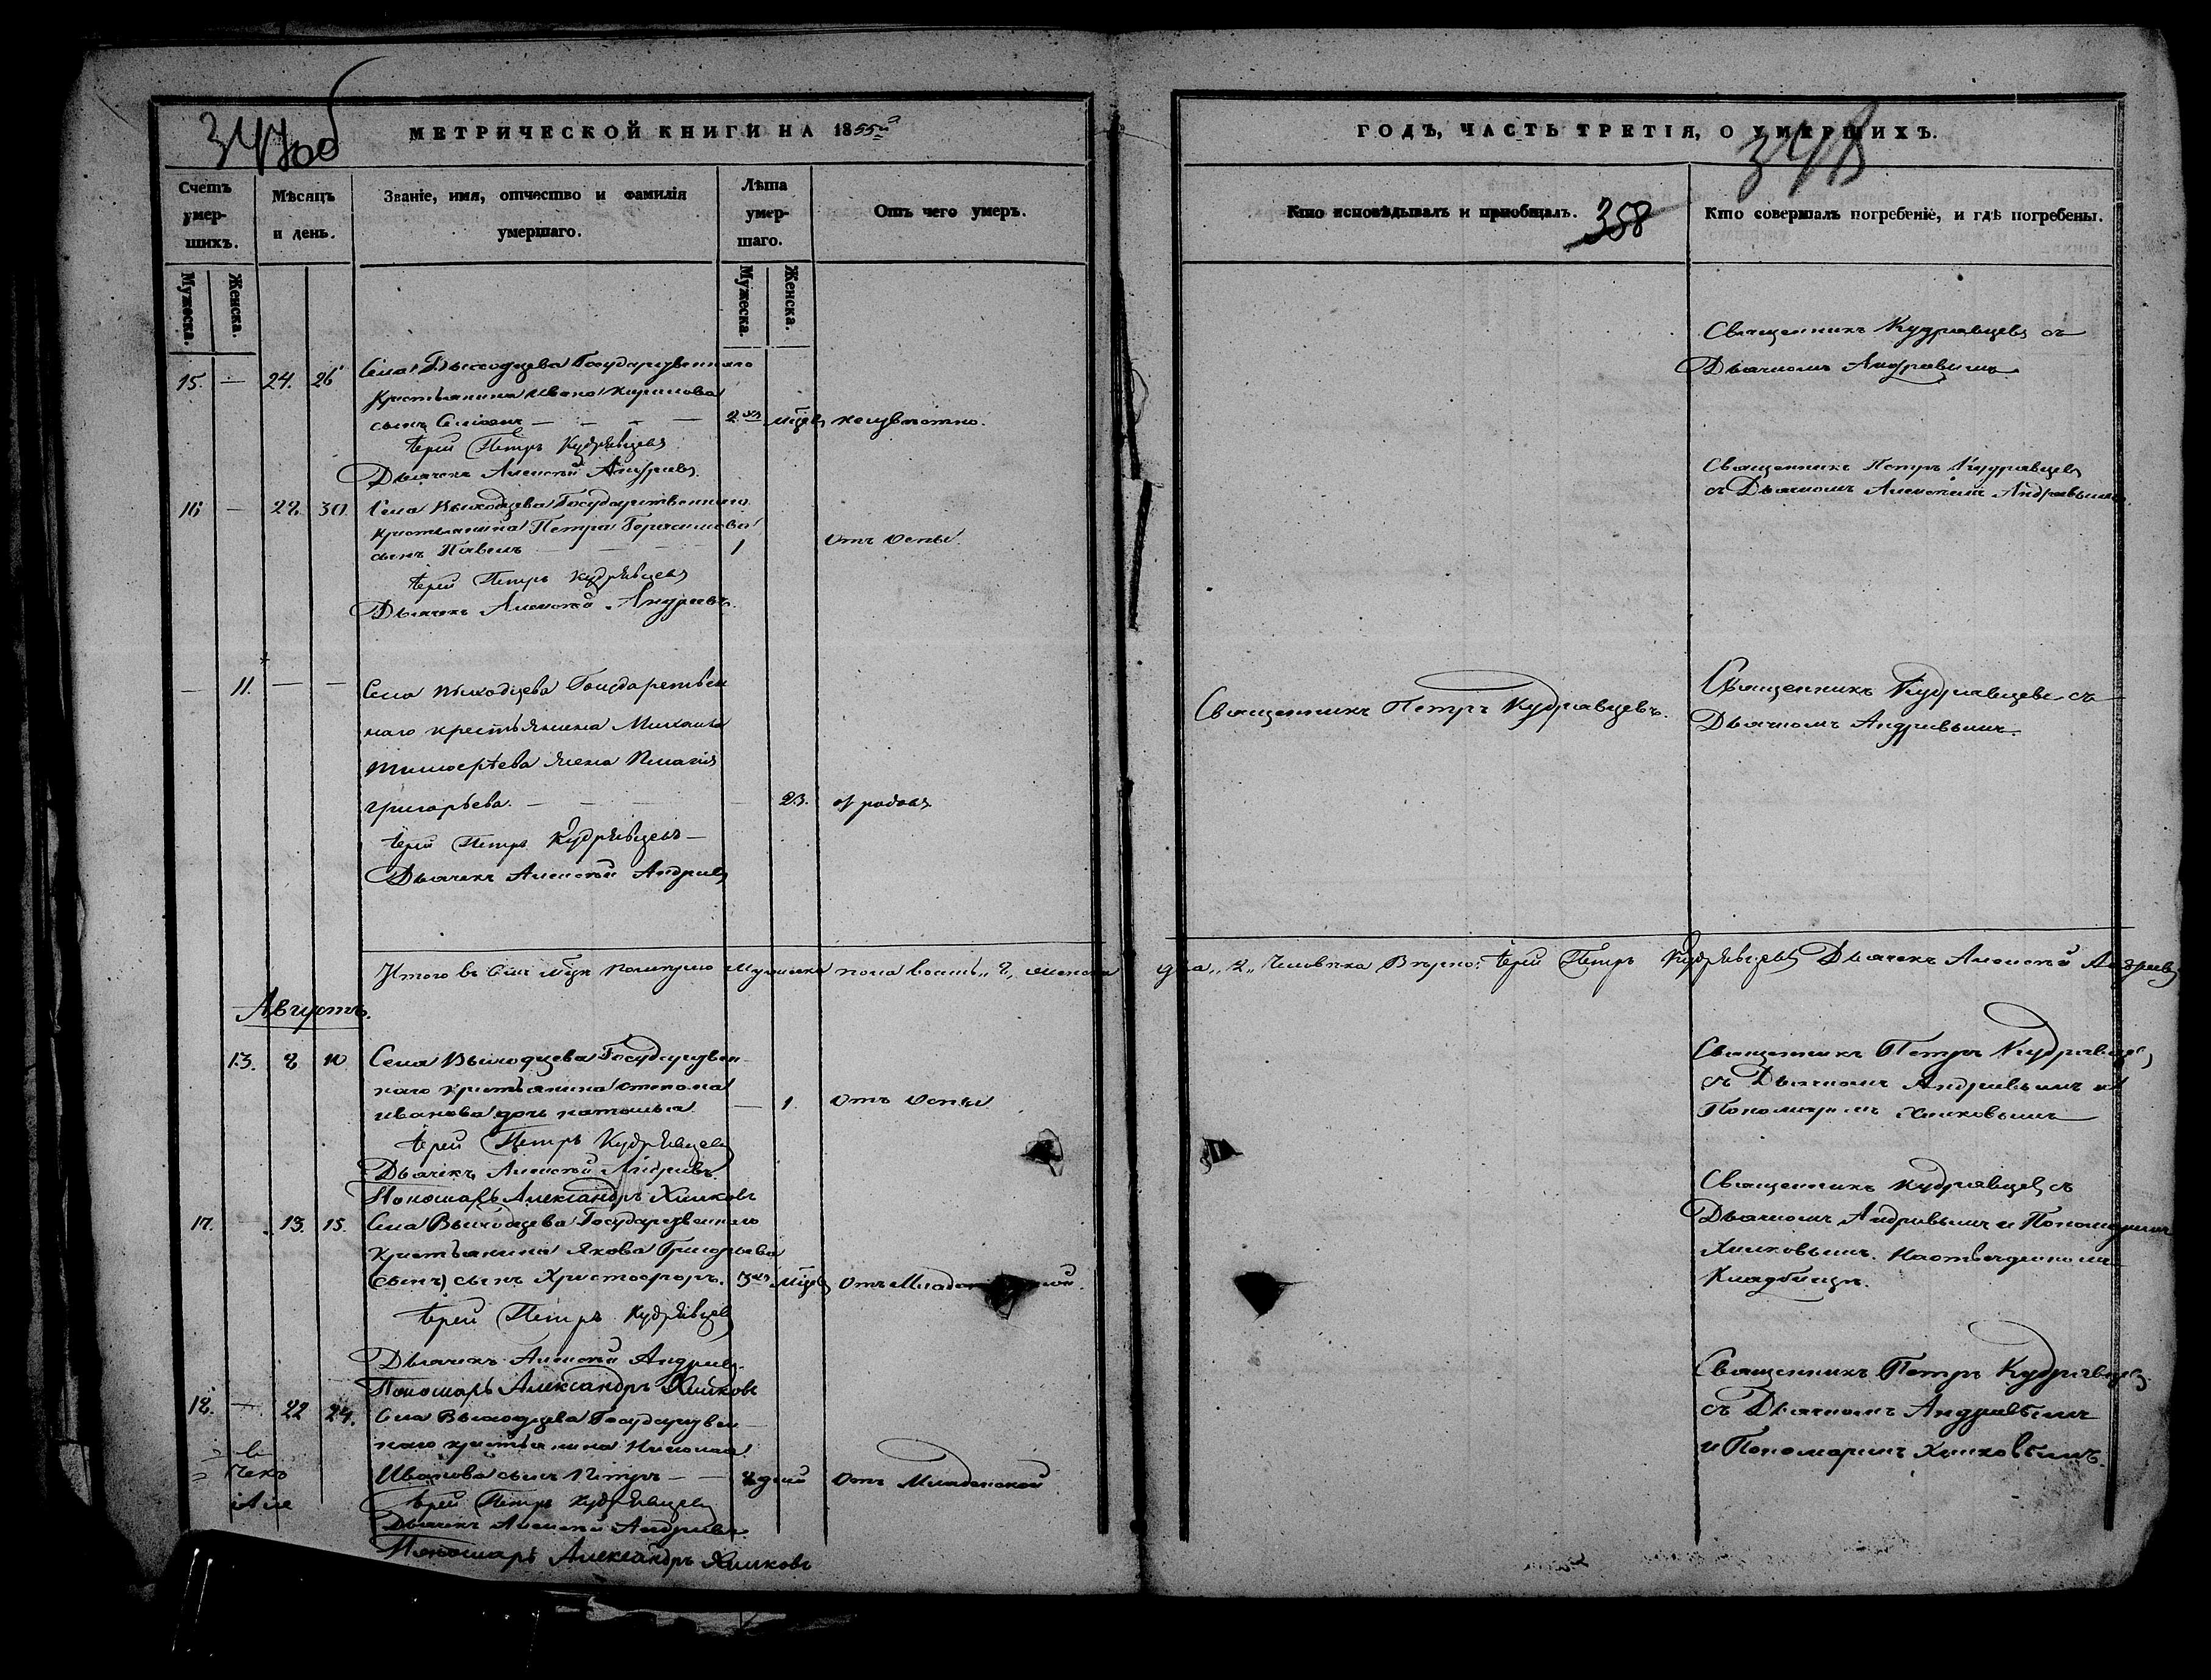 347об
МЕТРИЧЕСКОЙ КНИГИ НА 1855й
Счетъ умер-шихъ.
Мѣсяцъ и день.
Званіе, имя, отчество и фамилія умершаго.
Лѣта умер-шаго.
Отъ чего умеръ.
Мужеска.
Женска.
Мужеска.
Женска.
15. — 24. 26 Села Выходцева Государственнаго
крестьянина Ивана Кирилова
сынъ Симеонъ — — — 2хъ мѣсяц неизвѣстно.
Іерей Петръ Кудрявцевъ
Дьячекъ Алексѣй Андреевъ
16 — 28. 30. Села Выходцева Государственнаго
крестьянина Петра Герасимова
сынъ Павелъ — — — 1 отъ оспы.
Іерей Петръ Кудрявцевъ
Дьячекъ Алексѣй Андреевъ.
— 11. — — Села Выходцева Государствен
наго крестьянина Михаила
Тимофѣева жена Пелагія
Григорьева. — — — — 23. от родовъ
Іерей Петръ Кудрявцевъ —
Дьячекъ Алексѣй Андреевъ
Итого въ Іюлѣ мѣсяцѣ померло мужеска пола восмь „8„ женска
Августъ.
13. 8 10 Села Выходцева Государствен-
наго крестьянина
Иванова дочь Наталья — 1. отъ оспы
Іерей Петръ Кудрявцевъ
Дьячекъ Алексѣй Андреевъ
Пономарь Александръ Хилковъ
17. — 13. 15. Села Выходцева Государственнаго
крестьянина Якова Григорьева
(сынъ) сынъ Христофоръ. 3хъ мѣсяц отъ Младен
Іерей Петръ Кудрявцевъ
Дьячекъ Алексѣй Андреевъ
Пономарь Александръ Хилковъ
18. — 22 24. Села Выходцева Государствен-
наго крестьянина Николая
Иванова сынъ Петръ — — 8 дней отъ Младенской
Іерей Петръ Кудрявцевъ
Дьячекъ Алексѣй Андреевъ
Пономарь Александръ Хилковъ
ГОДЪ, ЧАСТЬ ТРЕТІЯ, О УМЕРШИХЪ.
348
Кто исповѣдывалъ и пріобщалъ.
358
Кто совершалъ погребеніе, и гдѣ погребены.
Священникъ Кудрявцевъ съ
Дьячкомъ Андреевымъ
Священникъ Петръ Кудрявцевъ
съ Дьячкомъ Алексѣемъ Андреевымъ
Священникъ Петръ Кудрявцевъ.
Священникъ Кудрявцевъ съ
Дьячкомъ Андреевымъ.
два „2„ человѣка Вѣрно: Іерей Петръ Кудрявцевъ Дьячекъ Алексѣй Андреевъ
Священникъ Петръ Кудрявцевъ
съ Дьячкомъ Андреевымъ и
Пономаремъ Хилковымъ
Священникъ Кудрявцевъ съ
Дьячкомъ Андреевымъ и Пономаремъ
Хилковымъ. На отведенномъ
Кладбищѣ.
Священникъ Петръ Кудрявцевъ
съ Дьячкомъ Андреевымъ
и Пономаремъ Хилковымъ.